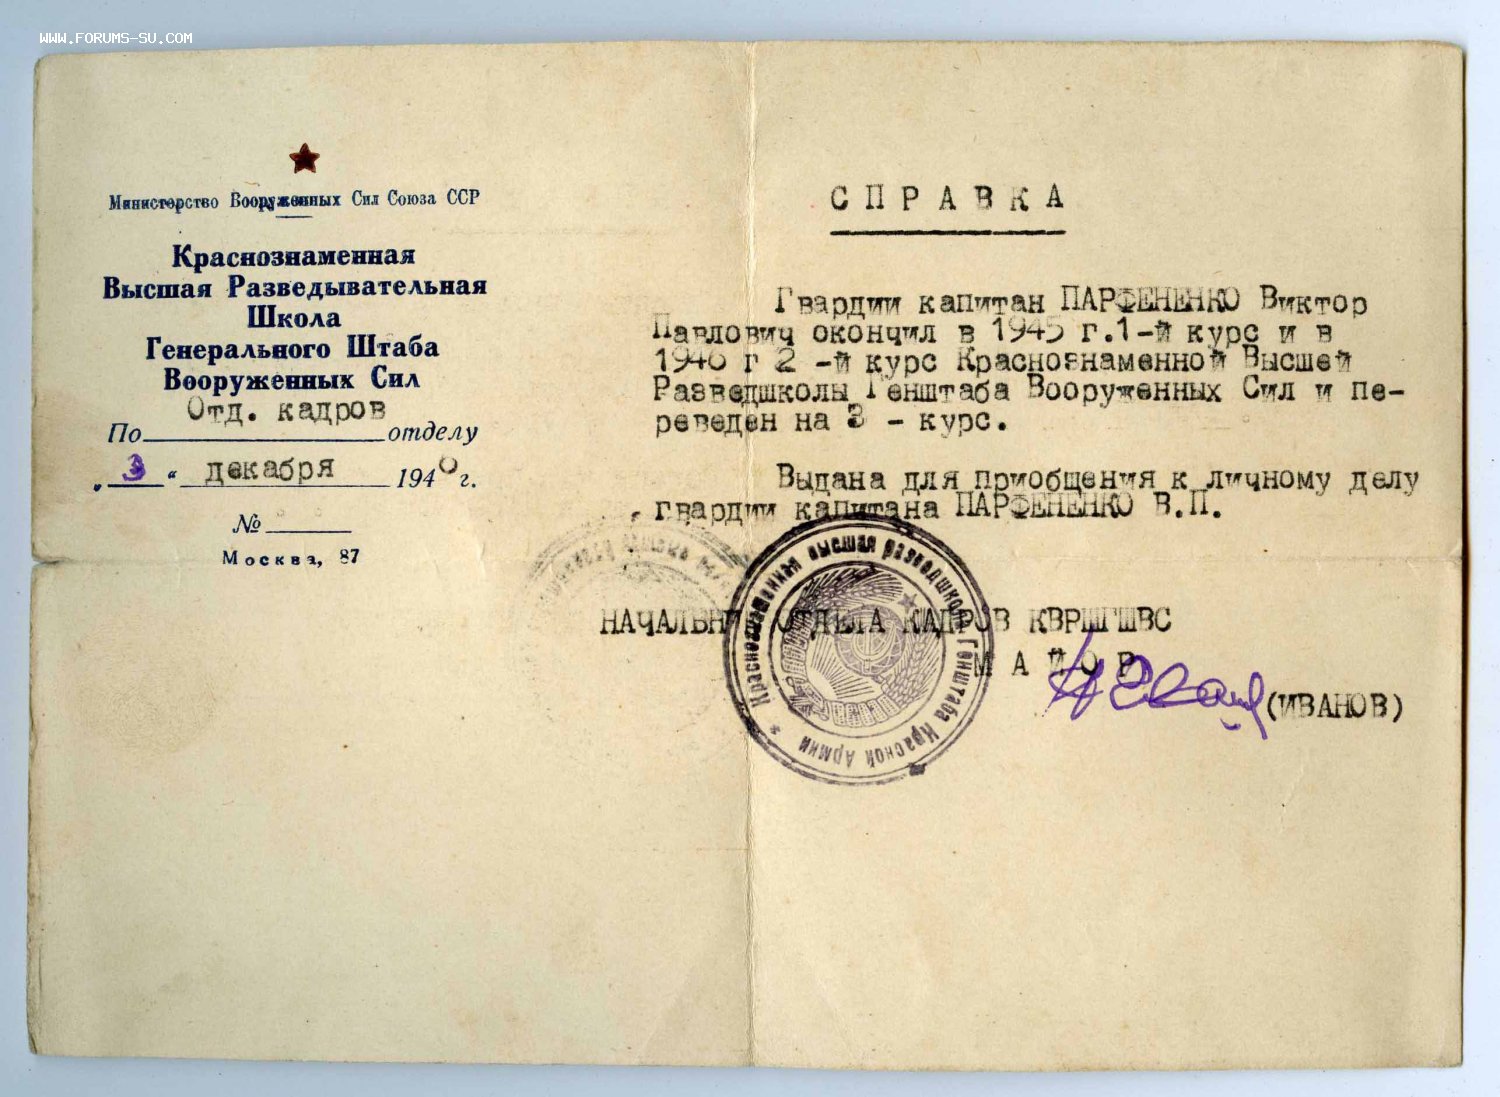 WWW.FORUMS-SU.COM
Министерство Вооруженных Сил Союза ССР
Краснознаменная
Высшая Разведывательная
Школа
Генерального Штаба
Вооруженных Сил
Отд. кадров
По отделу
„3“ декабря 1946 г.
№
Москва, 87
СПРАВКА
Гвардии капитан ПАРФЕНЕНКО Виктор
Павлович окончил в 1945 г.1-й курс и в
1946 г 2 -й курс Краснознаменной Высшей
Разведшколы Генштаба Вооруженных Сил и пе-
реведен на 3 - курс.
Выдана для приобщения к личному делу
гвардии капитана ПАРФЕНЕНКО В.П.
НАЧАЛЬНИК ОТДЕЛА КАДРОВ КВРШГШВС
МАЙОР
(ИВАНОВ)
Краснознаменная высшая разведшкола Генштаба Красной Армии